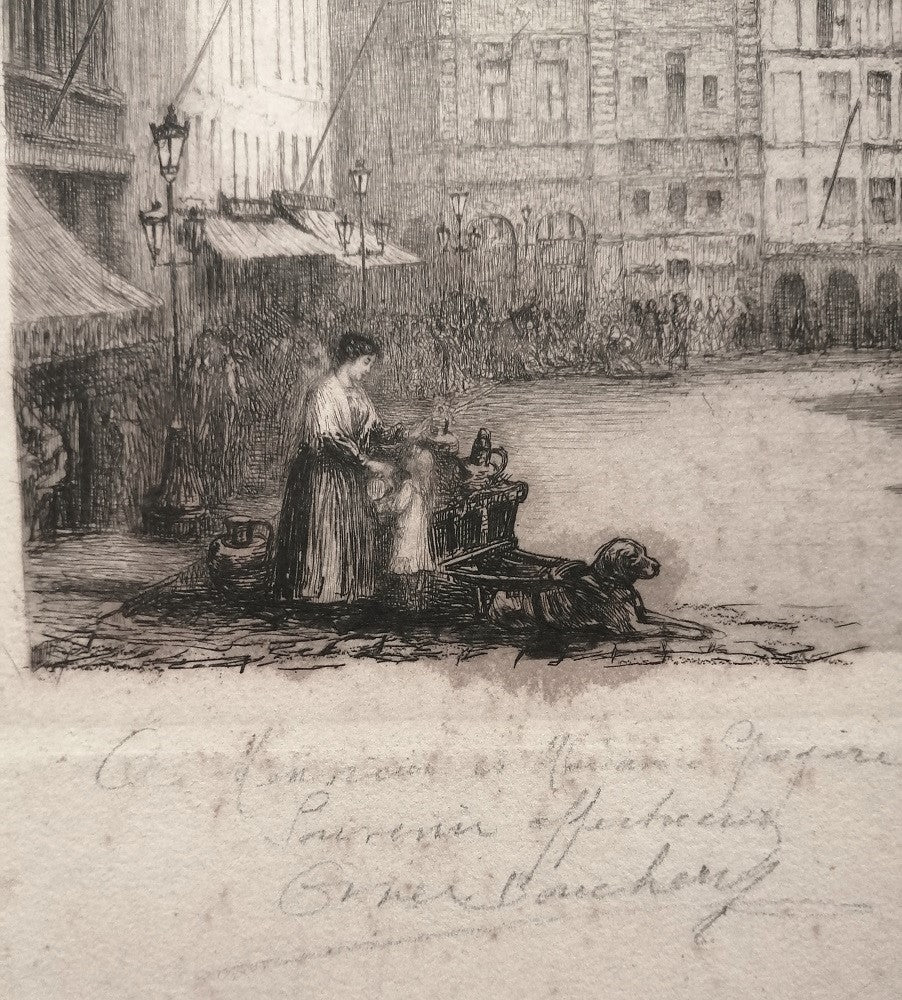 A Monsieur et Madame Grégoire
Souvenir affectueux
Omer Bouchery